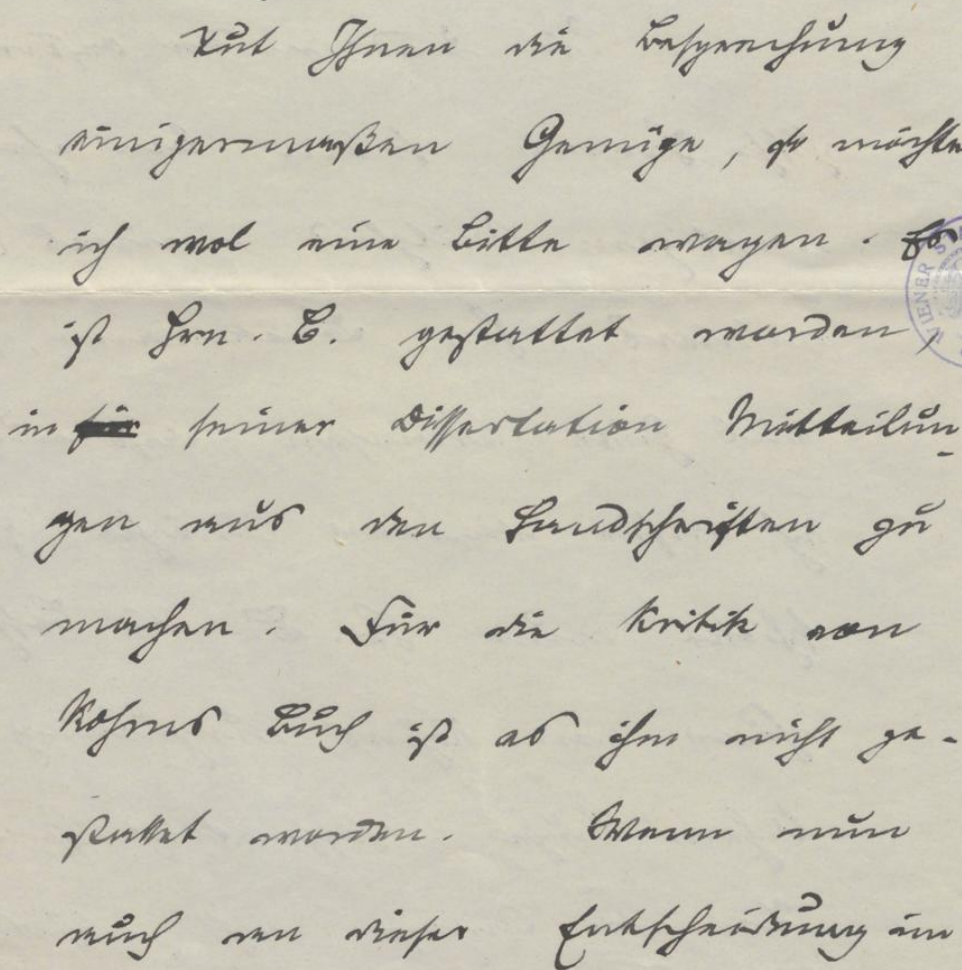 Tut Ihnen die Besprechung
einigermaßen Genüge, so möchte
ich wol eine Bitte wagen. Es
ist Hrn. B. gestattet worden,
in seiner Dissertation Mitteilun-
gen aus den Handschriften zu
machen. Für die Kritik von
Rohms Buch ist es ihm nicht ge-
stattet worden. Wenn nun
auch an dieser Entscheidung im
WIENER STA